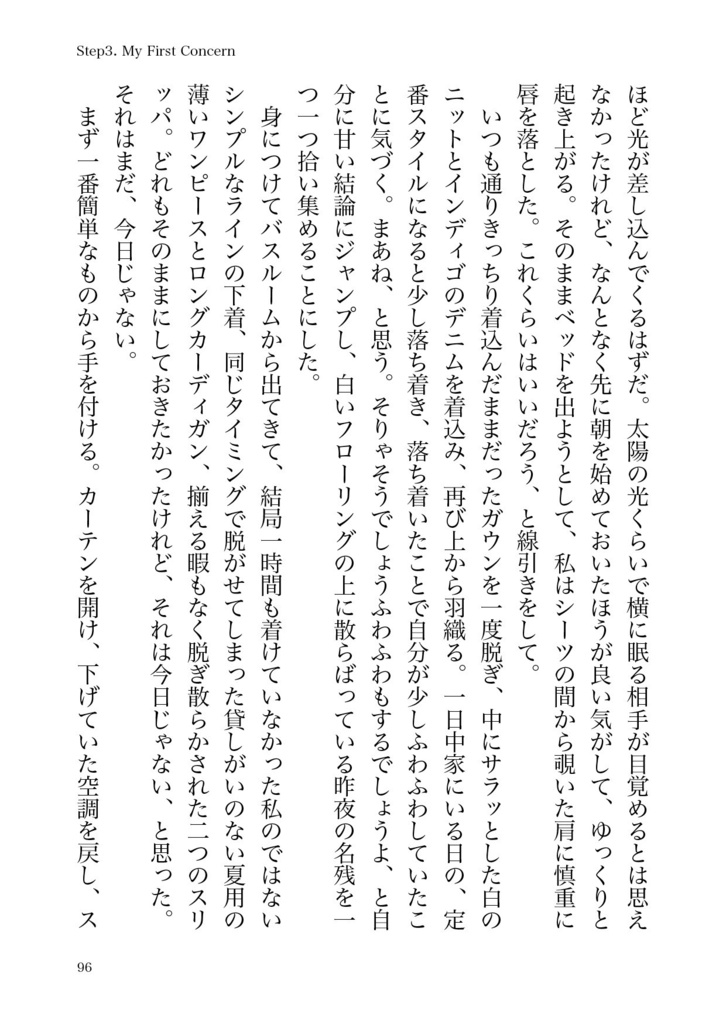 Step3. My First Concern
ほど光が差し込んでくるはずだ。太陽の光くらいで横に眠る相手が目覚めるとは思え
なかったけれど、なんとなく先に朝を始めておいたほうが良い気がして、ゆっくりと
起き上がる。そのままベッドを出ようとして、私はシーツの間から覗いた肩に慎重に
唇を落とした。これくらいはいいだろう、と線引きをして。
いつも通りきっちり着込んだままだったガウンを一度脱ぎ、中にサラッとした白の
ニットとインディゴのデニムを着込み、再び上から羽織る。一日中家にいる日の、定
番スタイルになると少し落ち着き、落ち着いたことで自分が少しふわふわしていたこ
とに気づく。まあね、と思う。そりゃそうでしょうふわふわもするでしょうよ、と自
分に甘い結論にジャンプし、白いフローリングの上に散らばっている昨夜の名残を一
つ一つ拾い集めることにした。
身につけてバスルームから出てきて、結局一時間も着けていなかった私のではない
シンプルなラインの下着、同じタイミングで脱がせてしまった貸しがいのない夏用の
薄いワンピースとロングカーディガン、揃える暇もなく脱ぎ散らかされた二つのスリ
ッパ。どれもそのままにしておきたかったけれど、それは今日じゃない、と思った。
それはまだ、今日じゃない。
まず一番簡単なものから手を付ける。カーテンを開け、下げていた空調を戻し、ス
96